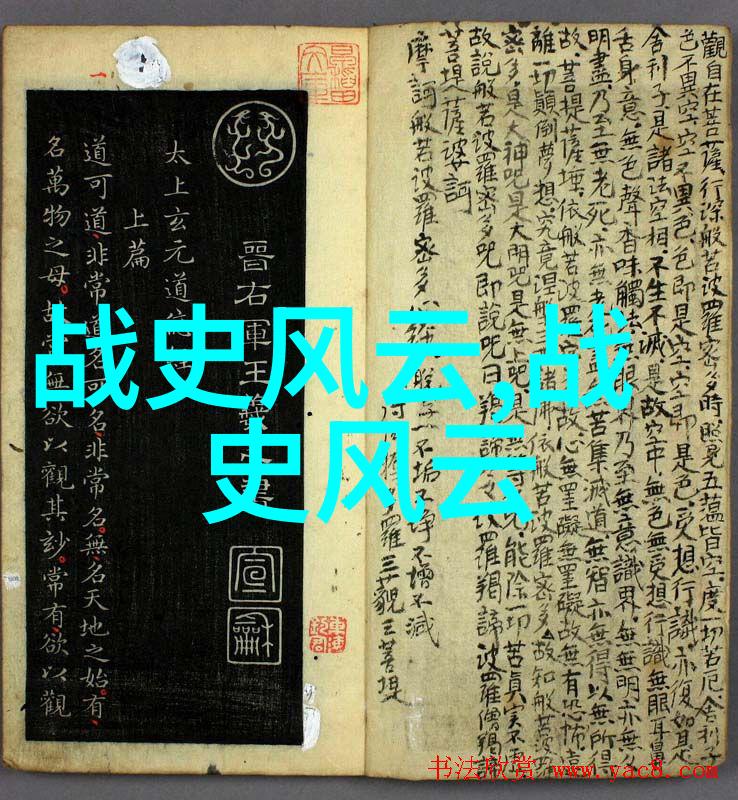 战史风云,战
史风云
觀自在菩薩行深般若波羅密多時照見五蘊皆空度一切苦厄舍利子
色不異空空不異色色即是空空即是色受想行識亦復如是
舍利子是諸法空相不生不滅是故空中無色無受想行識無眼耳鼻
舌身意無色聲香味觸法 眼界乃至無意識界無無明亦無
明盡乃至無老死亦無老 盡 苦集滅道無智亦無得以無所得
故菩提薩埵依般若波羅 故心無罣礙無罣礙故無有恐怖遠
離一切顛倒夢想究竟涅槃三 諸佛依般若波羅密多故知般若波
密多是大神咒是大明咒是無上咒是無 能除一切苦真實不
故說般若波羅密多咒即說咒曰羯諦 波羅羯諦波羅僧羯諦
菩提薩婆訶
摩訶般若波羅密多心經 不垢不淨不增不減
羅三藐三菩提
晉右軍王羲之書
宣龢
太上玄元道德經
上篇
道可道非常道名可名非常名無名天地之始有
名萬物之母故常無欲以觀其妙常有欲以觀
书法欣赏 www.yac8.com